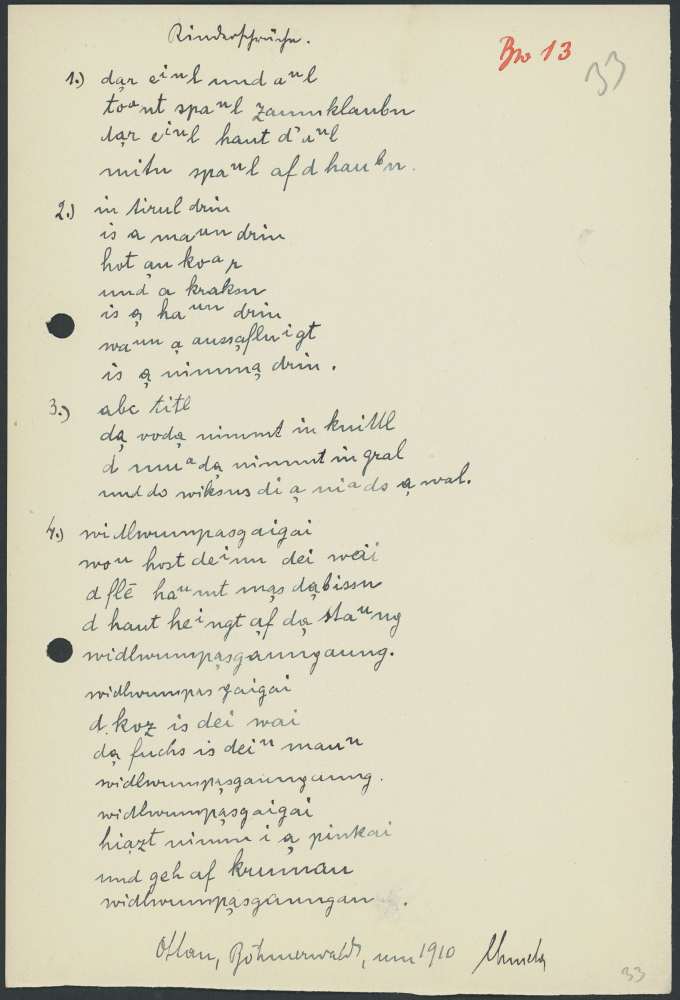 Kindersprüche.
Bw 13
33
1.) dąr eiⁿl und aⁿl
toᵃnt spaⁿl zaumklaubn
dąr eiⁿl haut d'aⁿl
mitn spaⁿl af d haubn.
2.) in tirul drin
is a maᵘⁿ drin
hot ąn koᵃr
und a kraksn
is ą haᵘⁿ drin
waᵘⁿ ą aussąfluigt
is ą nimmą drin.
3.) abc titl
dą vodą nimmt in knittl
d muᵃdą nimmt in gral
und do wiksns di ą niads ą wal.
4.) widlwumpasgaigai
woᵘ host deiⁿn dei wei
d flē haᵘmt mąs dąbissn
d haut heingt ąf dą staᵘng
widlwumpąsgaungaung.
widlwumpas gaigai
d. koz is dei wai
dą fuchs is deiⁿ mauⁿ
widlwumpąsgaungaung.
widlwumpąsgaigai
hiązt nimm i ą pinkai
und geh af krumau
widlwumpąsgaungau.
Ottau, Böhmerwald, um 1910
33